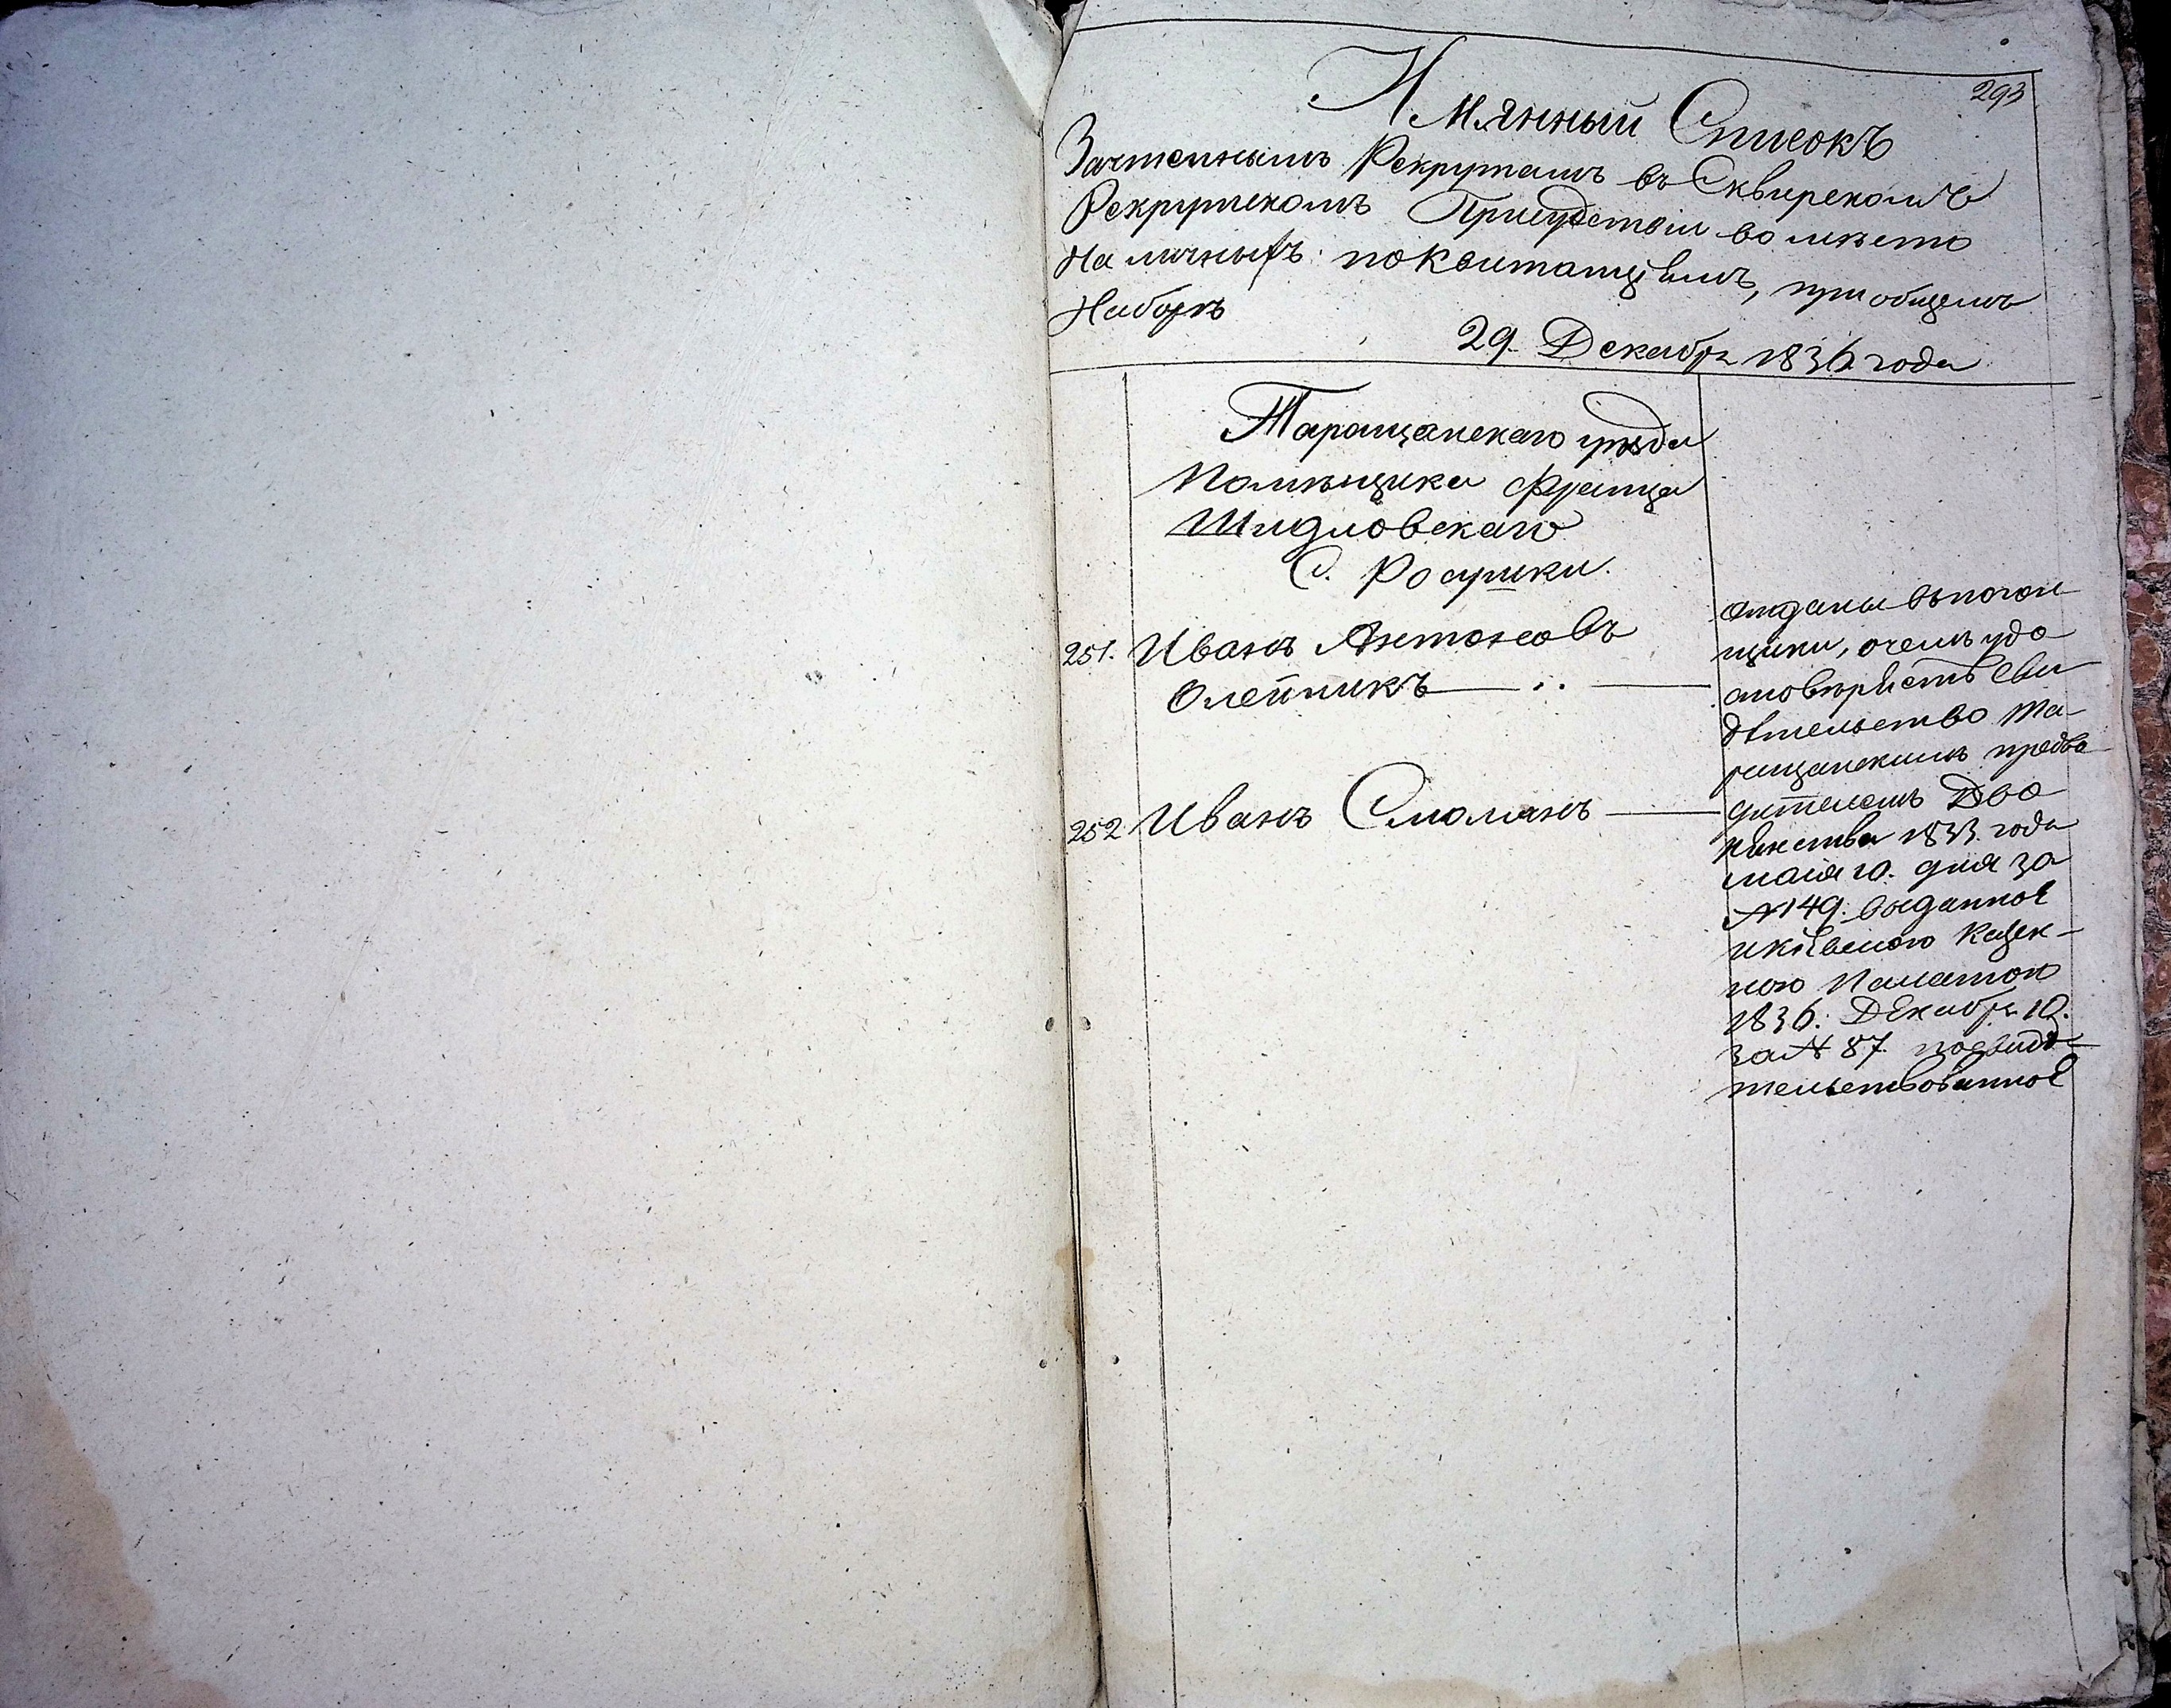 293
Имянный Списокъ
Зачтеннымъ Рекрутамъ въ Сквирскомъ
Рекрутскомъ Присудствіи во мѣсто
На личныхъ поквитанціямъ, при общемъ
Наборѣ
29. Декабря 1836 года
Таращанскаго уѣзда
Помѣщика Франца
Шидловскаго
С. Росушки.
251. Иванъ Антоновъ
Олейникъ
252 Иванъ Смоманъ
отданы въ погон
щики, очемъ удо
стовѣряетъ Сви
дѣтельство Та-
ращанскимъ предво
дителемъ Дво
рянства 1833 года
маія 10. дня за
№ 149. выданное
икіевскою Казен-
ною Палатою
1836. Декабря 10.
за № 87. посвидѣ-
тельствованное